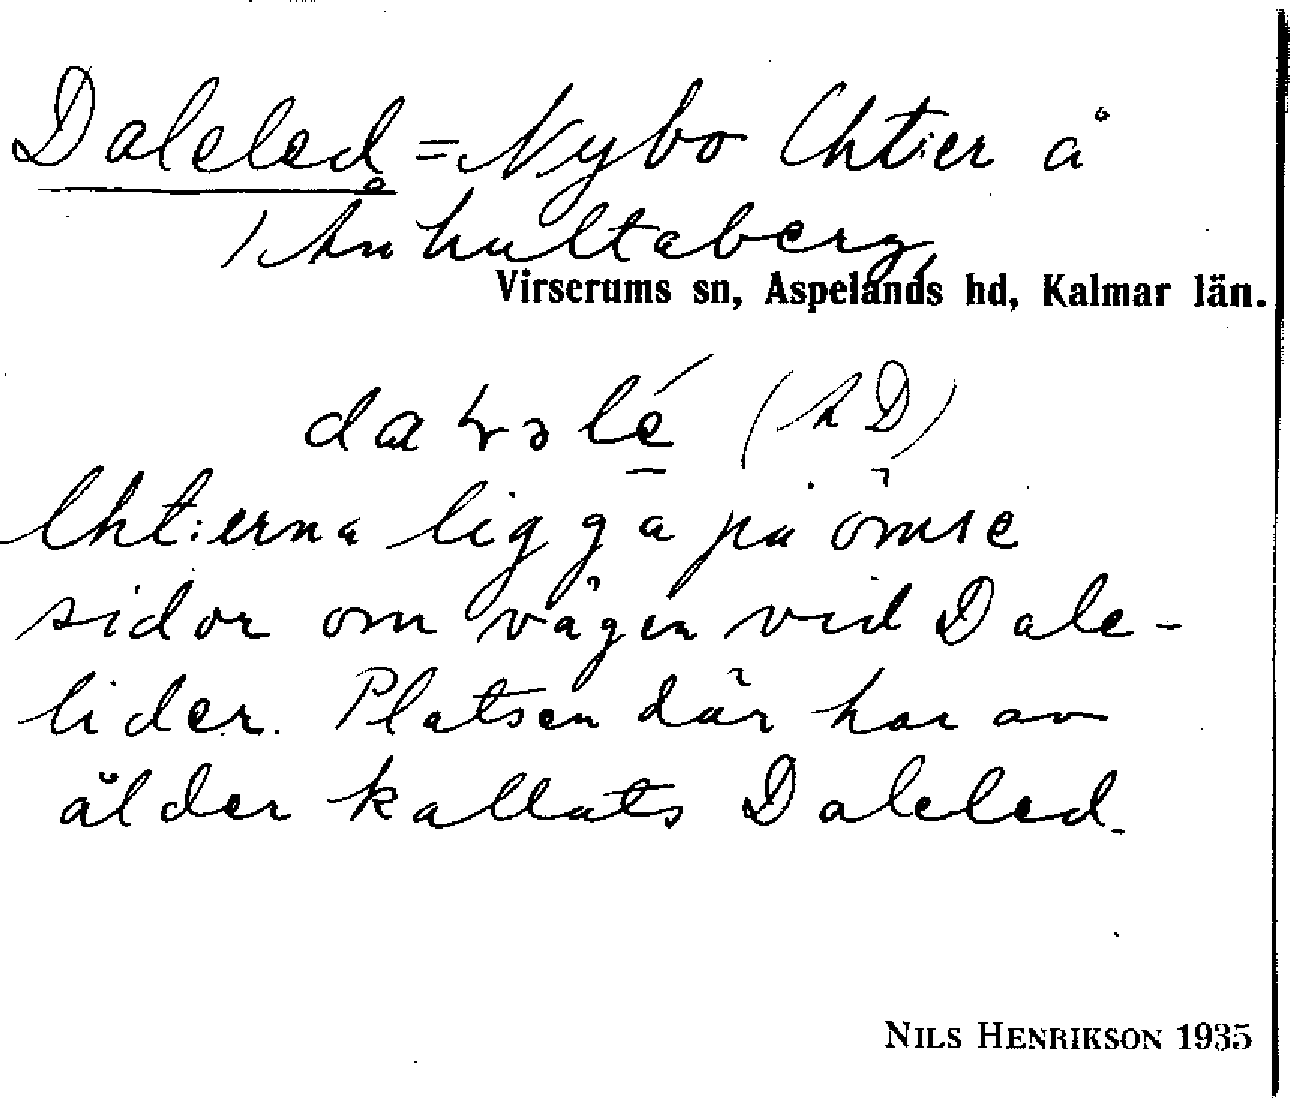 Daleled = Nybo lht:er å
1 Ånhultaberg,
Virserums sn, Aspelands hd, Kalmar län.
(AD)
lht:erna ligga på ömse
sidor om vägen vid Dale-
lider. Platsen där har av
ålder kallats Daleled.
NILS HENRIKSON 1935